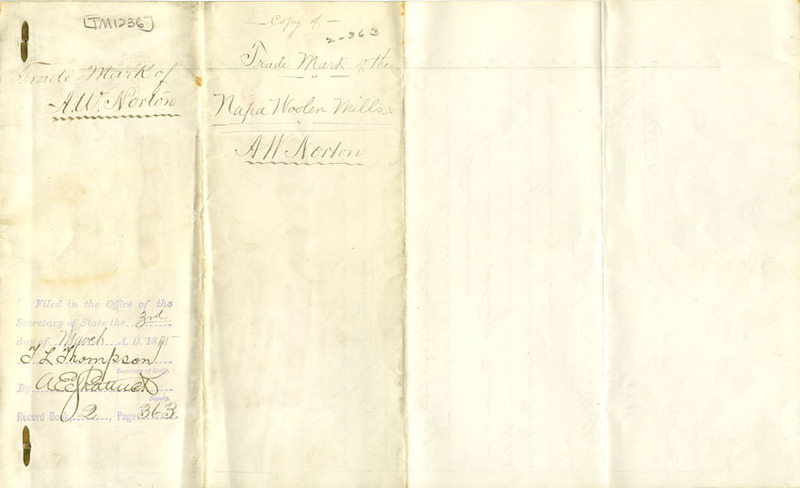 [TM1236]
Trade Mark of
A.W. Norton
Filed in the Office of the
Secretary of State the 3rd
day of March A. D. 18
T L Thompson
Secretary of State.
By
Deputy.
Record Book, 2, Page 363
— Copy of —
2-363
Trade Mark of the
"
Napa Woolen Mills.
"
A W Norton